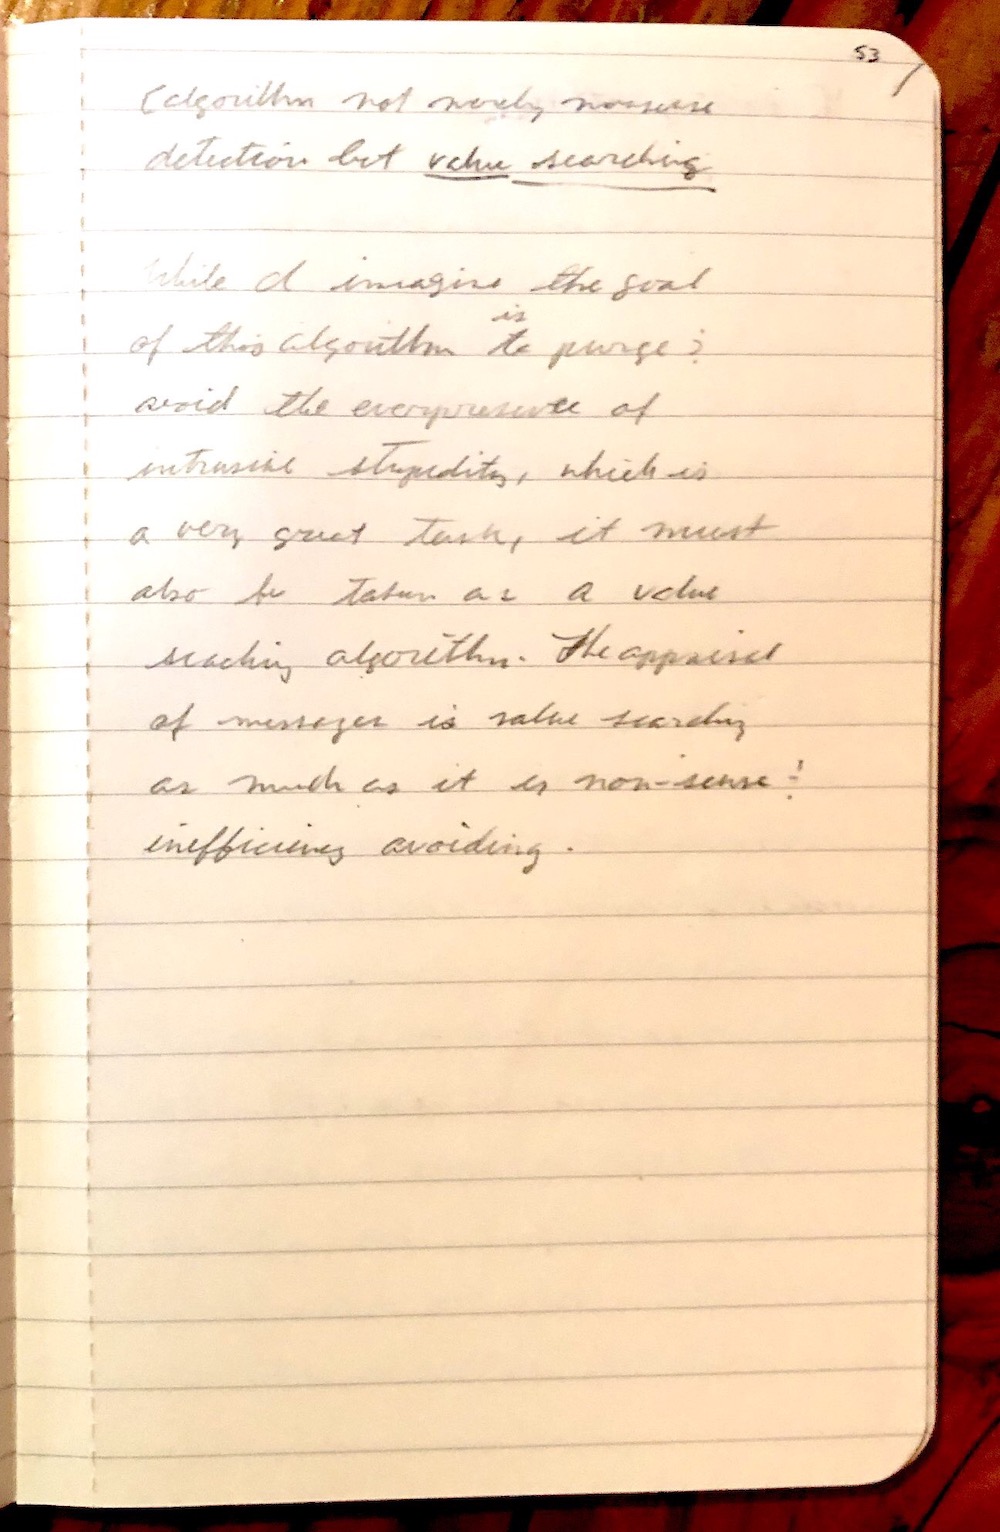 53
(algorithm not merely nonsense
detection but value searching
While I imagine the goal
is
of this algorithm to purge &
avoid the everpresence of
intrusive stupidity, which is
a very great task, it must
also be taken as a value
seaching algorithm. The appraisal
of messages is value searching
as much as it is non-sense &
inefficiency avoiding.